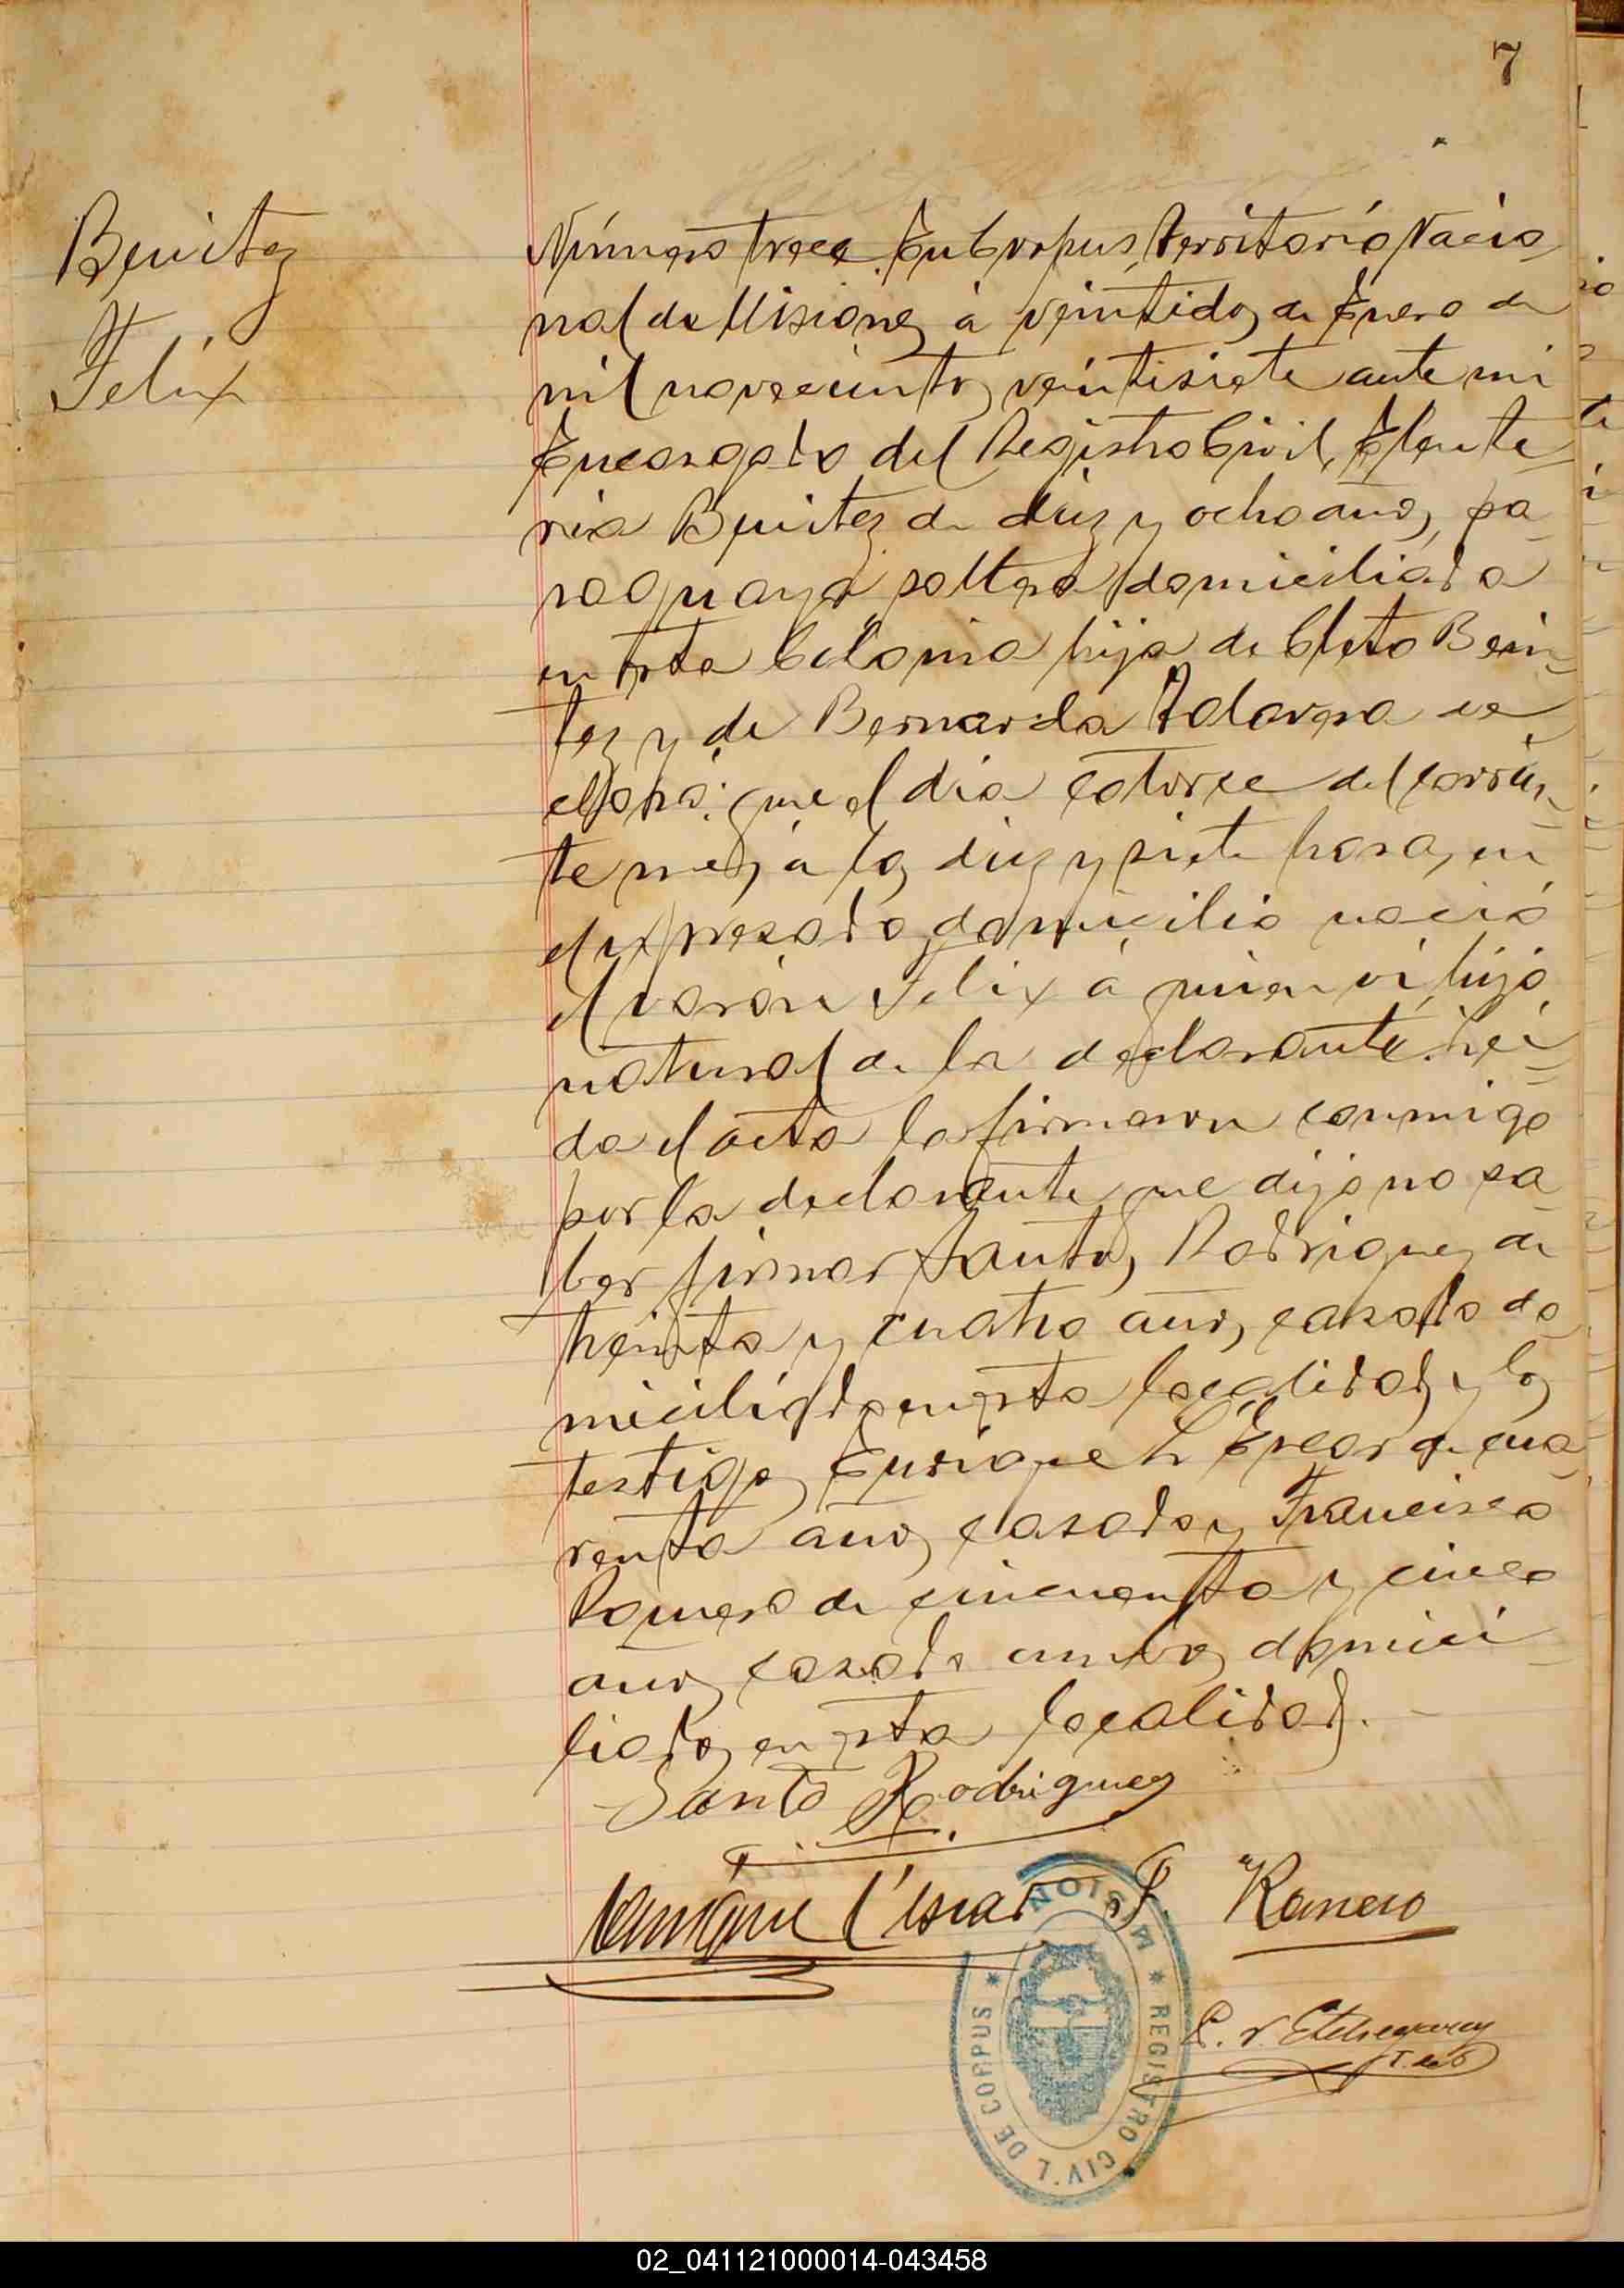 7
Benitez
Felix
Número trece. En Corpus, Territorio Nacio
nal de Misiones, á veintidos de Enero de
mil novecientos veintisiete ante mi
Encargado del Registro Civil, Eleute
ria Benitez de diez y ocho años, pa
raguaya soltera domiciliada
en esta Colonia hija de Cleto Beni
tez y de Bernarda Talavera de
claró: que el dia catorce del corrien
te mes, á las diez y siete horas, en
el expresado domicilio nació
el varón Felix á quien vi, hijo
natural de la declarante. Lei
da el acta la firmaron conmigo
por la declarante que dijo no sa
ber firmar Santos Rodriguez de
treinta y cuatro años, casado do
miciliado en esta localidad y los
testigos Enrique L Escar de cua
renta años, casado y Francisco
Romero de cincuenta y cinco
años, casado ambos domici
liados en esta localidad.
Santo Rodriguez
Enrique L'Escar F. Romero
Etchegaray
REGISTRO CIVIL DE CORPUS * MISIONES *
02_041121000014-043458